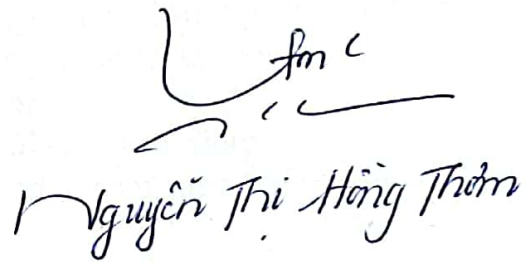 Nguyễn Thị Hồng Thơm